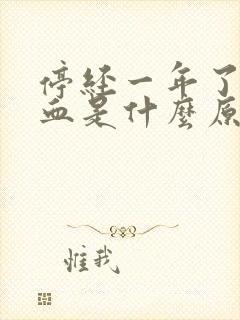 停经一年了
血是什麼原
惟我